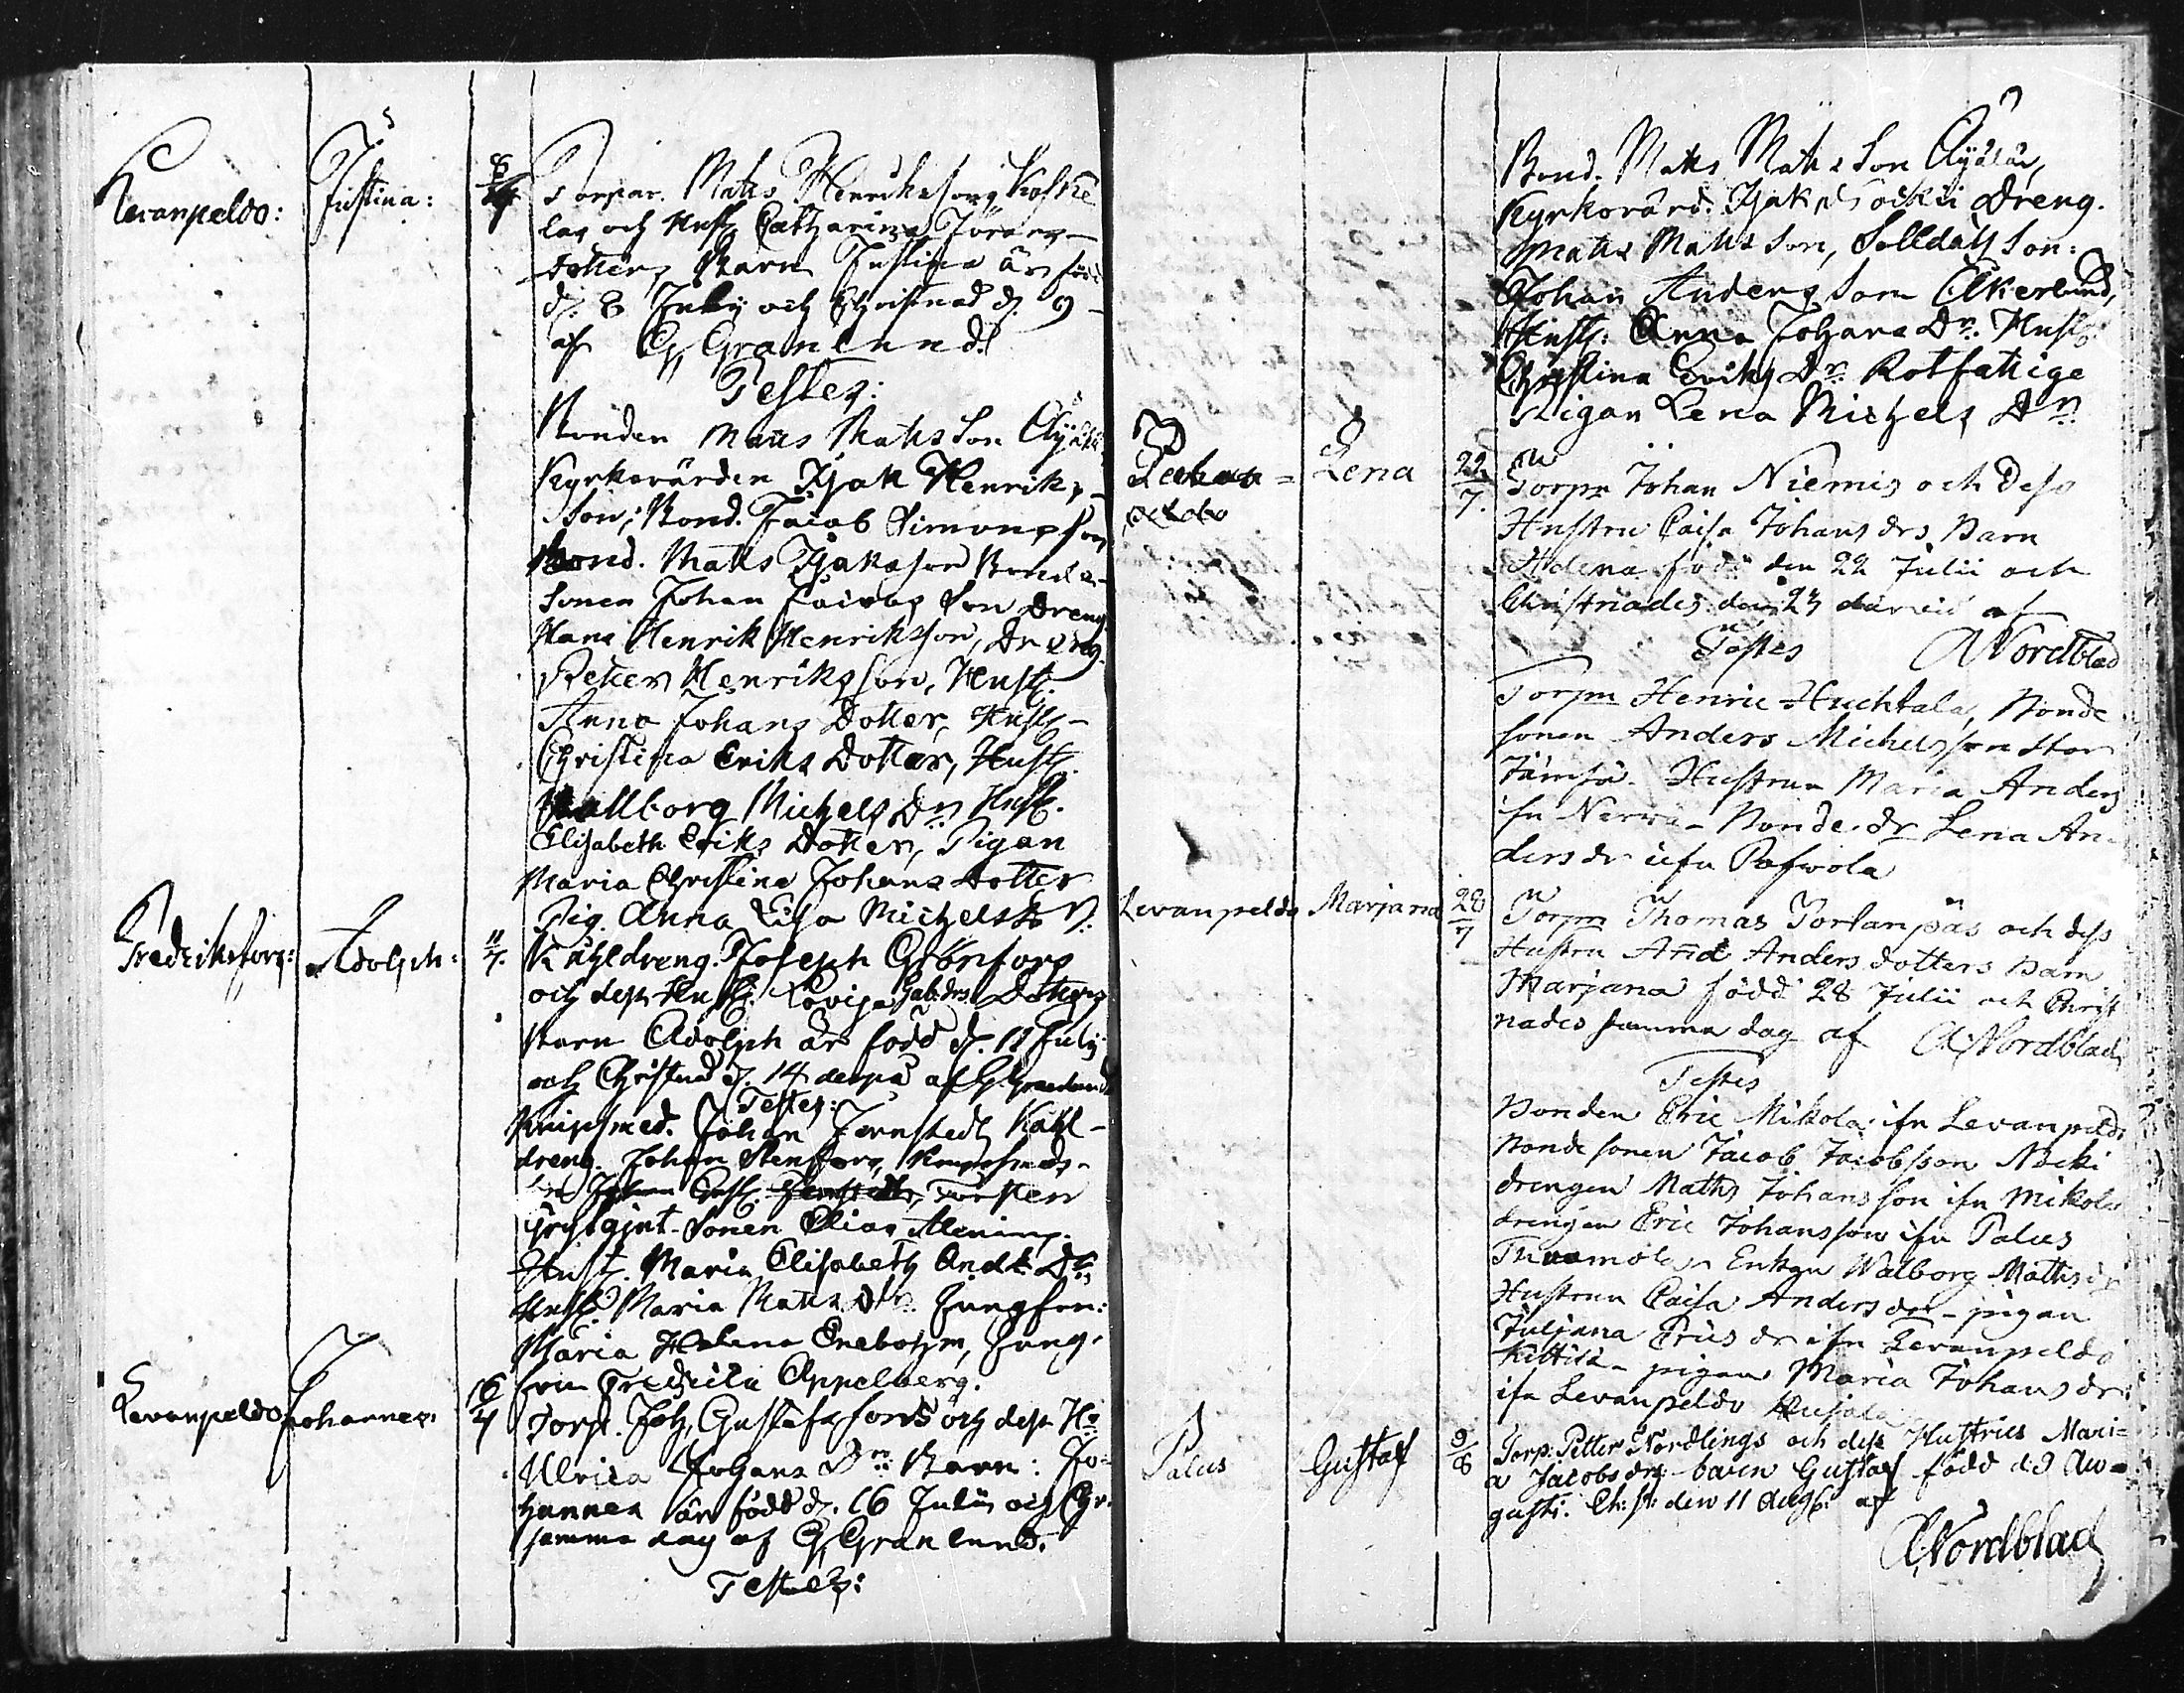 Levanpeldo: Justina: 8/7 Torpar. Mats Henriksons Koske
las och Hust. Catharina Jörans
dotters Barn Justina är född
d. 8 July och Christnad d. 9
af G. Granlund.
Testes:
Bonden Mats Matsson Äyälä
Kyrkovärden Isak Henriks
Son; Bond. Jacob Simonsson
Bond. Mats Isaksson Bonde
Sonen Johan Jacobs Son Dreng
Hans Henrik Henriksson, Dreng.
Peter Henriksson, Hust.
Anna Johans Dotter, Hust.
Christina Eriks Dotter, Hust.
Wallborg Michels Dr. Hust.
Elisabeth Eriks Dotter, Pigan
Maria Christina Johans Dotter
Pig. Anna Lisa Michels Dr.
Fredriksfors: Adolph: 11/7. Kåhldreng. Joseph Grönfors
och dess Hust. Lovisa Jab:drs Dotters
Barn Adolph är född d. 11 July
och Christnad d. 14 derpå af G. Granlund
Testes:
Knipsmed. Johan Jernstedt Kåhl-
dreng. Johan Stenfors, Knipsmeds-
Torsten
Sonen Elias Alening.
Hust. Maria Elisabeth And: Dr.
Hust. Maria Mats Dr. Jungfru:
Maria Helena Enebohm, Jung-
frun Fredrica Appelberg.
Levanpeldo Johannes: 16/7 Torp. Joh. Gustafssons och dess H:o
Ulrica Johans Dr. Barn: Jo-
hannes är född d. 16 Julii och Chr.
samma dag af G. Granlund.
Testes:
Bond. Mats Mats Son Äyälän,
Kyrkovärd. Isak Dreng.
Mats Mats Son, Solldats Son:
Johan Anders Son Åkerlund,
Hust: Anna Johans Dr. Hust:
Christina Eriks Dr. Rotfattige
Pigan Lena Michels Dr.
Levan=
peldo Lena 22/7. Torpn Johan Niemis och Dess
Hustru Caisa Johans drs Barn
Helena född den 22 Julii och
Christnades den 23 darvid af
Testes A Nordblad
Torpn Henric Huchtala, Bonde
sonen Anders Michelsson Stor
Jämsä. Hustrun Maria Anders
ifn Nerwä - Bonde dr Lena An-
ders dr ifn Pafwola
Levanpeldo Marjana 28/7 Torpn Thomas Torlanpäs och dess
Hustru And Anders dotters Barn
Marjana född 28 Julii och Christ
nades samma dag af A. Nordblad
Testes
Bonden Eric Mikola ifn Levanpeldo
Bonde sonen Jacob Jacobsson Näcki
drengen Maths Johansson ifn Mikola
drengen Eric Johansson ifn Palus
Enkan Walborg Maths dr
Hustrun Caisa Anders dr - pigan
Juljana Erics dr ifn Levanpeldo
Kittilä - pigan Maria Johans dr
ifn Levanpeldo
Palus Gustaf 9/8 Torp: Petter Nordlings och dess Hustrus Mari=
a Jacobs drs barn Gustaf född d:9 Au=
gusti. Ch:st: den 11 Aug: af
A Nordblad